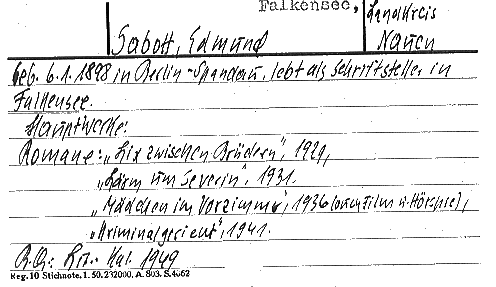 Falkensee,
Landkreis
Sabott, Edmund
Nauen
Geb. 6.1.1898 in Berlin-Spandau, lebt als Schriftsteller in
Falkensee.
Hauptwerke:
Romane: „Lix zwischen Brüdern", 1929,
„Lärm um Severin", 1931.
„Mädchen im Vorzimmer", 1936 (auch Film u. Hörspiel),
„Kriminalgericht", 1941.
Lit. Kal. 1949
Reg. 10 Stichnote, 1. 50. 232000, A. 803. S. 4062